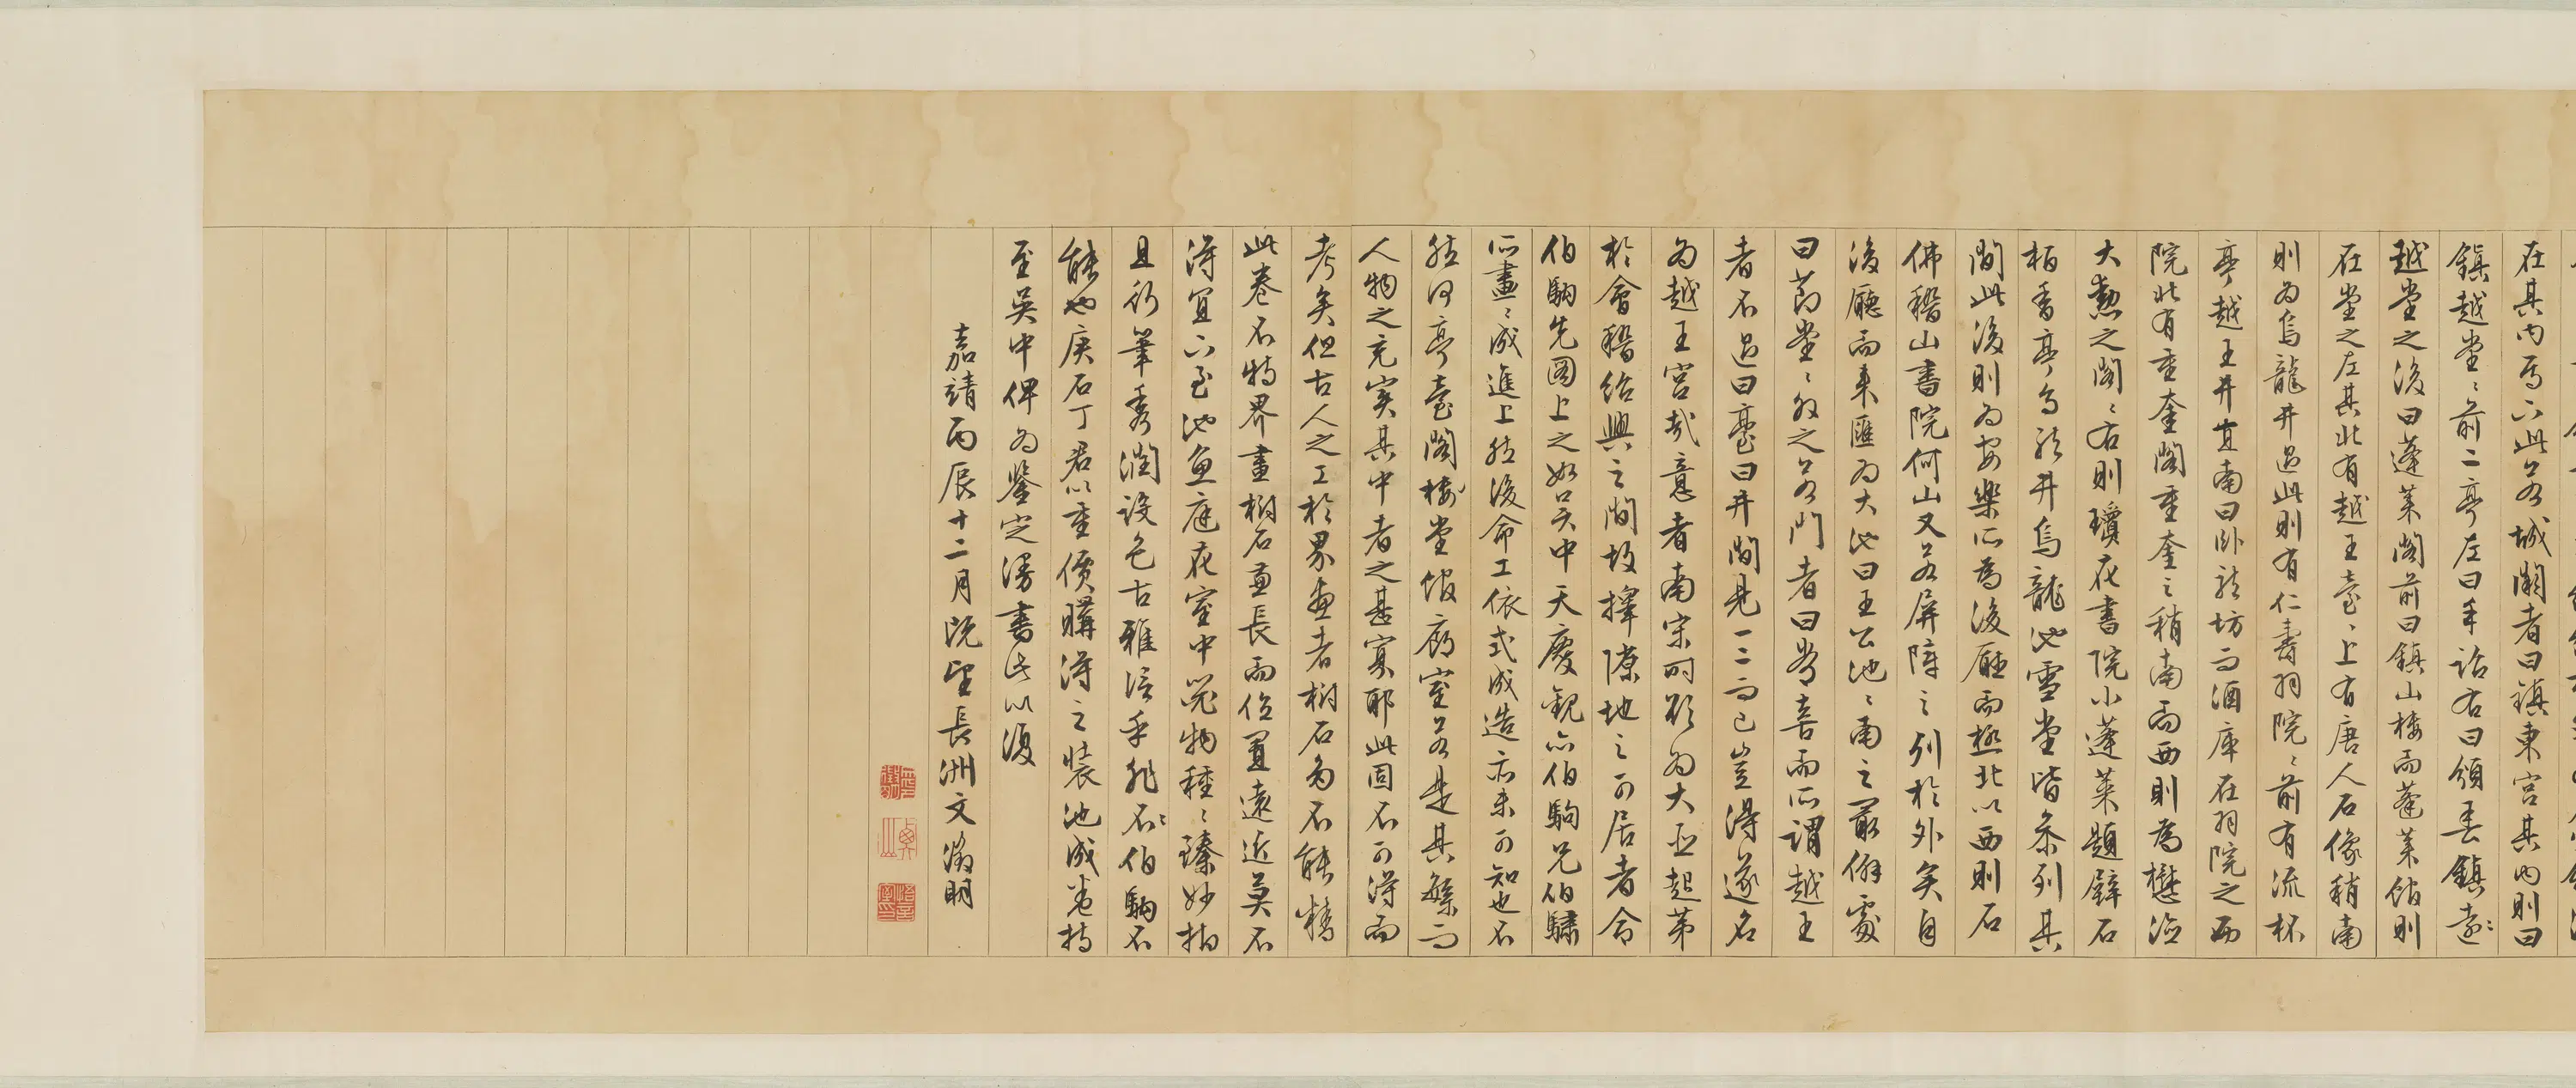 在其內焉六此名城闕者曰鎮東宮其內則曰
鎮越堂〻前二亭左曰手詔右曰頒春鎮
越堂之後曰蓬萊閣前曰鎮山樓而蓬萊館則
在堂之左其北有越王臺〻上有唐人石像稍南
則為烏龍井過此則有仁壽羽院〻前有流杯
亭越王井宜南曰臥龍坊而酒庫在羽院之西
院北有重奎閣重奎之稍南而西則為
大勲之閣〻右則瓊花書院小蓬萊題壁石
栢香亭龍井烏龍池雪堂皆叅列其
間此後則為安樂所為後廳而極北以西則石
佛稽山書院何山又名屏障之列於外矣自
後廳而東匯為大池曰王公池〻南之最僻處
曰莭堂〻之名門者曰常喜而所謂越王
者不過曰臺曰井間見一二而已豈得遂名
為越王宮哉意者南宋時欲為大
於會稽紹興之間故擇隙地之可居者令
伯駒先圖上之如吳中天慶觀亦伯駒兄伯驌
所畫〻成進上然後命工依式成造亦未可知也不
然何亭臺閣樓堂館廊室名是其繁而
人物之充實其中者之甚寡耶此固不可得而
考矣但古人之工於界畫者樹石多不能精
此卷不特界畫樹石兼長而位置遠近莫不
得宜六至池魚庭花室中器物種〻臻妙
且行筆秀潤設色古雅信乎非伯駒不
能也庚石丁君以重價購得之裝池成卷持
至吳中俾為鑒定漫書此以復
嘉靖丙辰十二月既望長洲文徵明